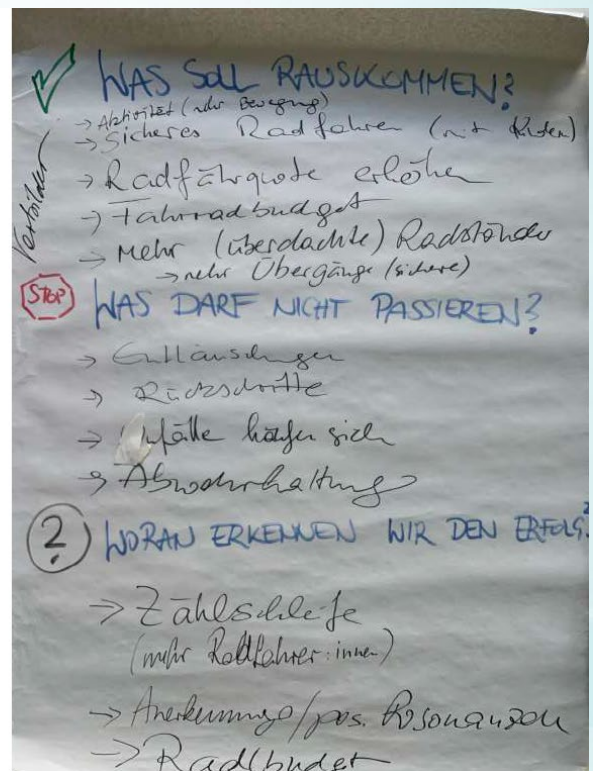 WAS SOLL RAUSKOMMEN?
→ Aktivität (mehr Bewegung)
→ Sicheres Radfahren (mit Kindern)
→ Radfahrquote erhöhen
→ Fahrradbudget
→ Mehr (überdachte) Radständer
→ mehr Übergänge (sichere)
Vorbilder
STOP
WAS DARF NICHT PASSIEREN?
→ Enttäuschungen
→ Rückschritte
→ Unfälle häufen sich
→ Abwehrhaltung
?
WORAN ERKENNEN WIR DEN ERFOLG?
→ Zählschleife
(mehr Radfahrer:innen)
→ Anerkennung/pos. Resonanzen
→ Radlbudget